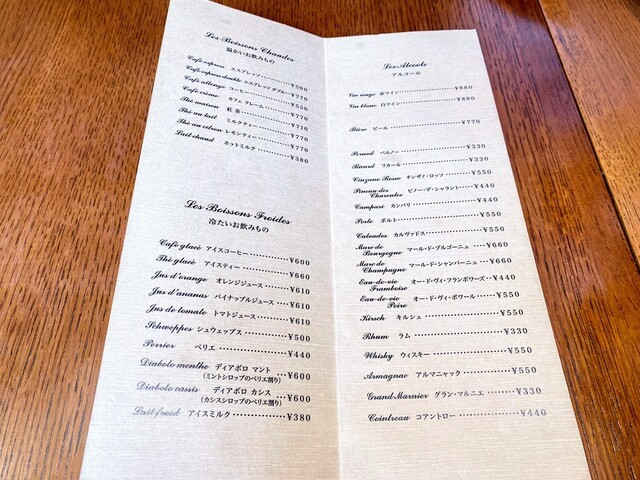 Les Boissons Chaudes
温かいお飲みもの
Café express エスプレッソ ¥500
Café express double エスプレッソ ダブル ¥770
Café allongé コーヒー ¥550
Café crème カフェ クレーム ¥770
Thé maison 紅茶 ¥710
Thé au lait ミルクティー ¥770
Thé au citron レモンティー ¥770
Lait chaud ホットミルク ¥380
Les Boissons Froides
冷たいお飲みもの
Café glacé アイスコーヒー ¥600
Thé glacé アイスティー ¥660
Jus d'orange オレンジジュース ¥610
Jus d'ananas パイナップルジュース ¥610
Jus de tomate トマトジュース ¥610
Schweppes シュウェップス ¥500
Perrier ペリエ ¥440
Diabolo menthe ディアボロ マント ¥600
(ミントシロップのペリエ割り)
Diabolo cassis ディアボロ カシス ¥600
(カシスシロップのペリエ割り)
Lait froid アイスミルク ¥380
Les Alcools
アルコール
Vin rouge 赤ワイン ¥880
Vin blanc 白ワイン ¥880
Bière ビール ¥770
Pernod ペルノー ¥330
Ricard リカール ¥330
Cinzano Rosso チンザノ・ロッソ ¥550
Pineau des Charentes ピノー・デ・シャラント ¥440
Campari カンパリ ¥440
Porto ポルト ¥550
Calvados カルヴァドス ¥550
Marc de Bourgogne マール・ド・ブルゴーニュ ¥660
Marc de Champagne マール・ド・シャンパーニュ ¥660
Eau-de-vie Framboise オー・ド・ヴィ・フランボワーズ ¥440
Eau-de-vie Poire オー・ド・ヴィ・ポワール ¥550
Kirsch キルシュ ¥550
Rhum ラム ¥330
Whisky ウィスキー ¥550
Armagnac アルマニャック ¥550
Grand Marnier グラン・マルニエ ¥330
Cointreau コアントロー ¥440